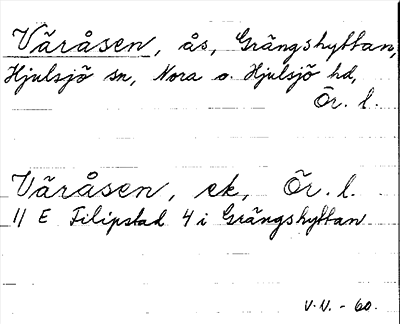 Väråsen, ås, Grängshyttan,
Hjulsjö sn, Nora o. Hjulsjö hd,
Ör. l.
Väråsen, ek, Ör. l.
11 E Filipstad 4 i Grängshyttan
V.N. - 60.